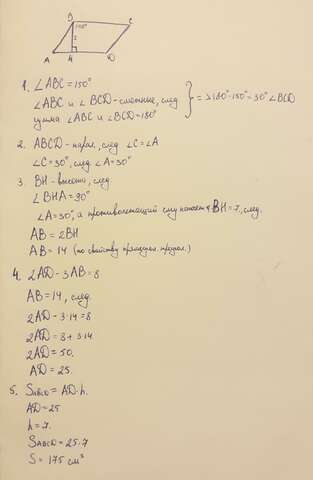 B
C
150°
7
A
H
D
1. ∠ABC=150°
∠ABC и ∠BCD-смежные, след.
сумма ∠ABC и ∠BCD=180°
=> 180°-150°=30° ∠BCD
2. ABCD - пар., след. ∠C=∠A
∠C=30°, след. ∠A=30°
3. BH - высота, след.
∠BHA=90°
∠A=30°, а противолежащий ему катет BH=7, след.
AB=2BH
AB=14 (по свойству прямоуг. треуг.)
4. 2AD-3AB=8
AB=14, след.
2AD-3·14=8
2AD=8+3·14
2AD=50.
AD=25.
5. SABCD=AD·h.
AD=25
h=7.
SABCD=25·7
S=175 см²